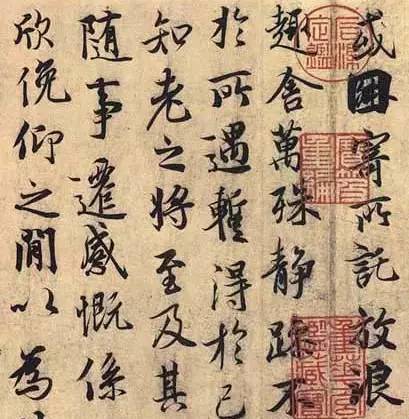 或因寄所託放浪
趣舍萬殊静躁不
於所遇暫得於己
知老之將至及其
隨事遷感慨係
欣俛仰之閒以為